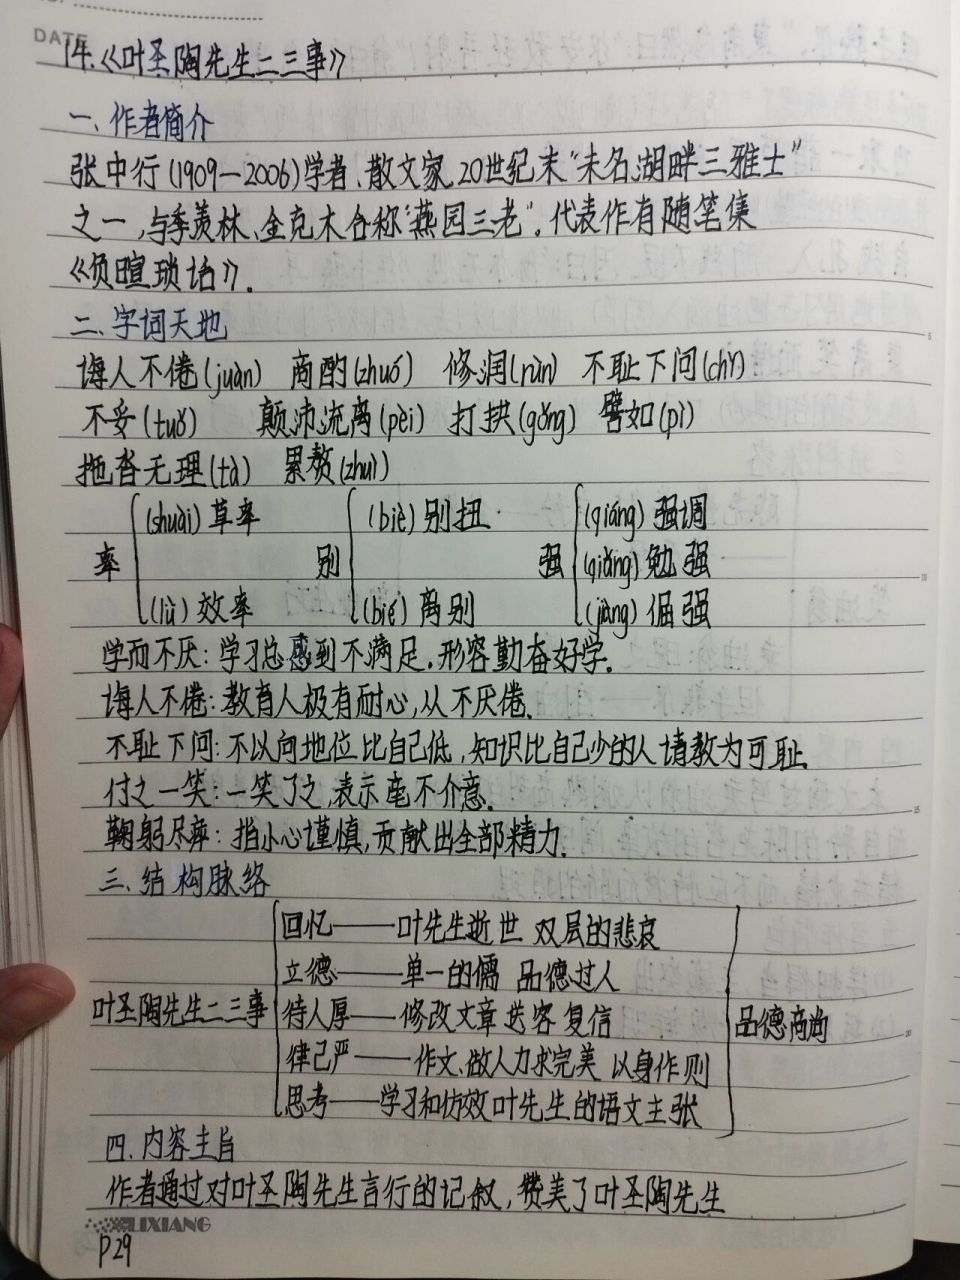 DATE
14.《叶圣陶先生二三事》
一、作者简介
张中行(1909—2006)学者、散文家,20世纪末"未名湖畔三雅士"
之一,与季羡林、金克木合称"燕园三老"。代表作有随笔集
《负暄琐话》.
二、字词天地
诲人不倦(juàn) 商酌(zhuó) 修润(rùn) 不耻下问(chǐ)
不妥(tuǒ) 颠沛流离(pèi) 打拱(gǒng) 譬如(pì)
拖沓无理(tà) 累赘(zhuì)
(shuài)草率 (biè)别扭 (qiáng)强调
率 别 强 (qiǎng)勉强
(lǜ)效率 (bié)离别 (jiàng)倔强
学而不厌:学习总感到不满足.形容勤奋好学.
诲人不倦:教育人极有耐心,从不厌倦.
不耻下问:不以向地位比自己低,知识比自己少的人请教为可耻.
付之一笑:一笑了之,表示毫不介意.
鞠躬尽瘁:指小心谨慎,贡献出全部精力.
三、结构脉络
回忆——叶先生逝世 双层的悲哀
立德——单一的儒 品德过人
叶圣陶先生二三事 待人厚——修改文章 送客 复信 品德高尚
律己严——作文、做人力求完美 以身作则
思考——学习和仿效叶先生的语文主张
四、内容主旨
作者通过对叶圣陶先生言行的记叙,赞美了叶圣陶先生
LIXIANG
P29